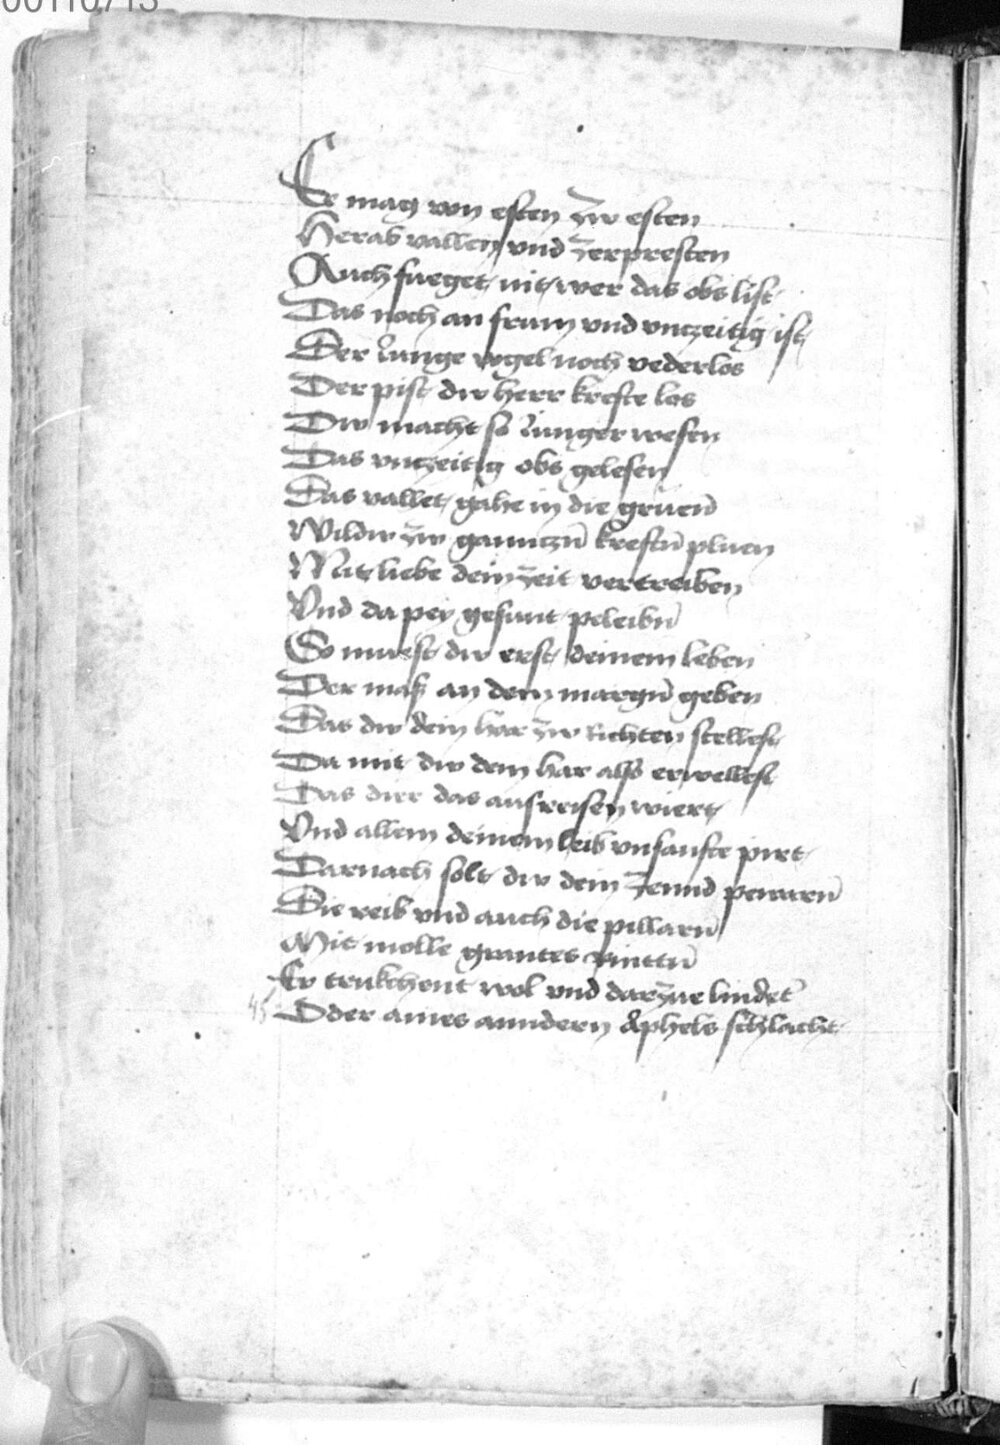 00110713
Er mag von esten zw esten
Herab vallen vnd zerpresten
Auch fueget nit wer das obs list
Das noch an frum vnd vnczeitig ist
Der Junge vogel noch vederlos
Der pist dw herr krefte los
Dw macht so Junger wesen
Das vnczeitig obs gelesen
Das vallet gahe in die gruen̄
Wildw zw ganntzn̄ kreftn̄ pluen
Mit liebe dein zeit vertreiben
Vnd da pey gesunt peleibn̄
So muest dw erst deinem leben
Der mass an dem margn̄ geben
Das dw dein har zw Richten stellest
Da mit dw dem har also erwellest
Das dier das aufreisen wiert
Vnd allem deinem leib vnsanfte pirt
Darnach solt dw dein Zennd pewaren̄
Die reib vnd auch die pillarn̄
Mit wolle
Er trukchent wol vnd darzue lindet
45 Oder aines anndern Aphels schlacht